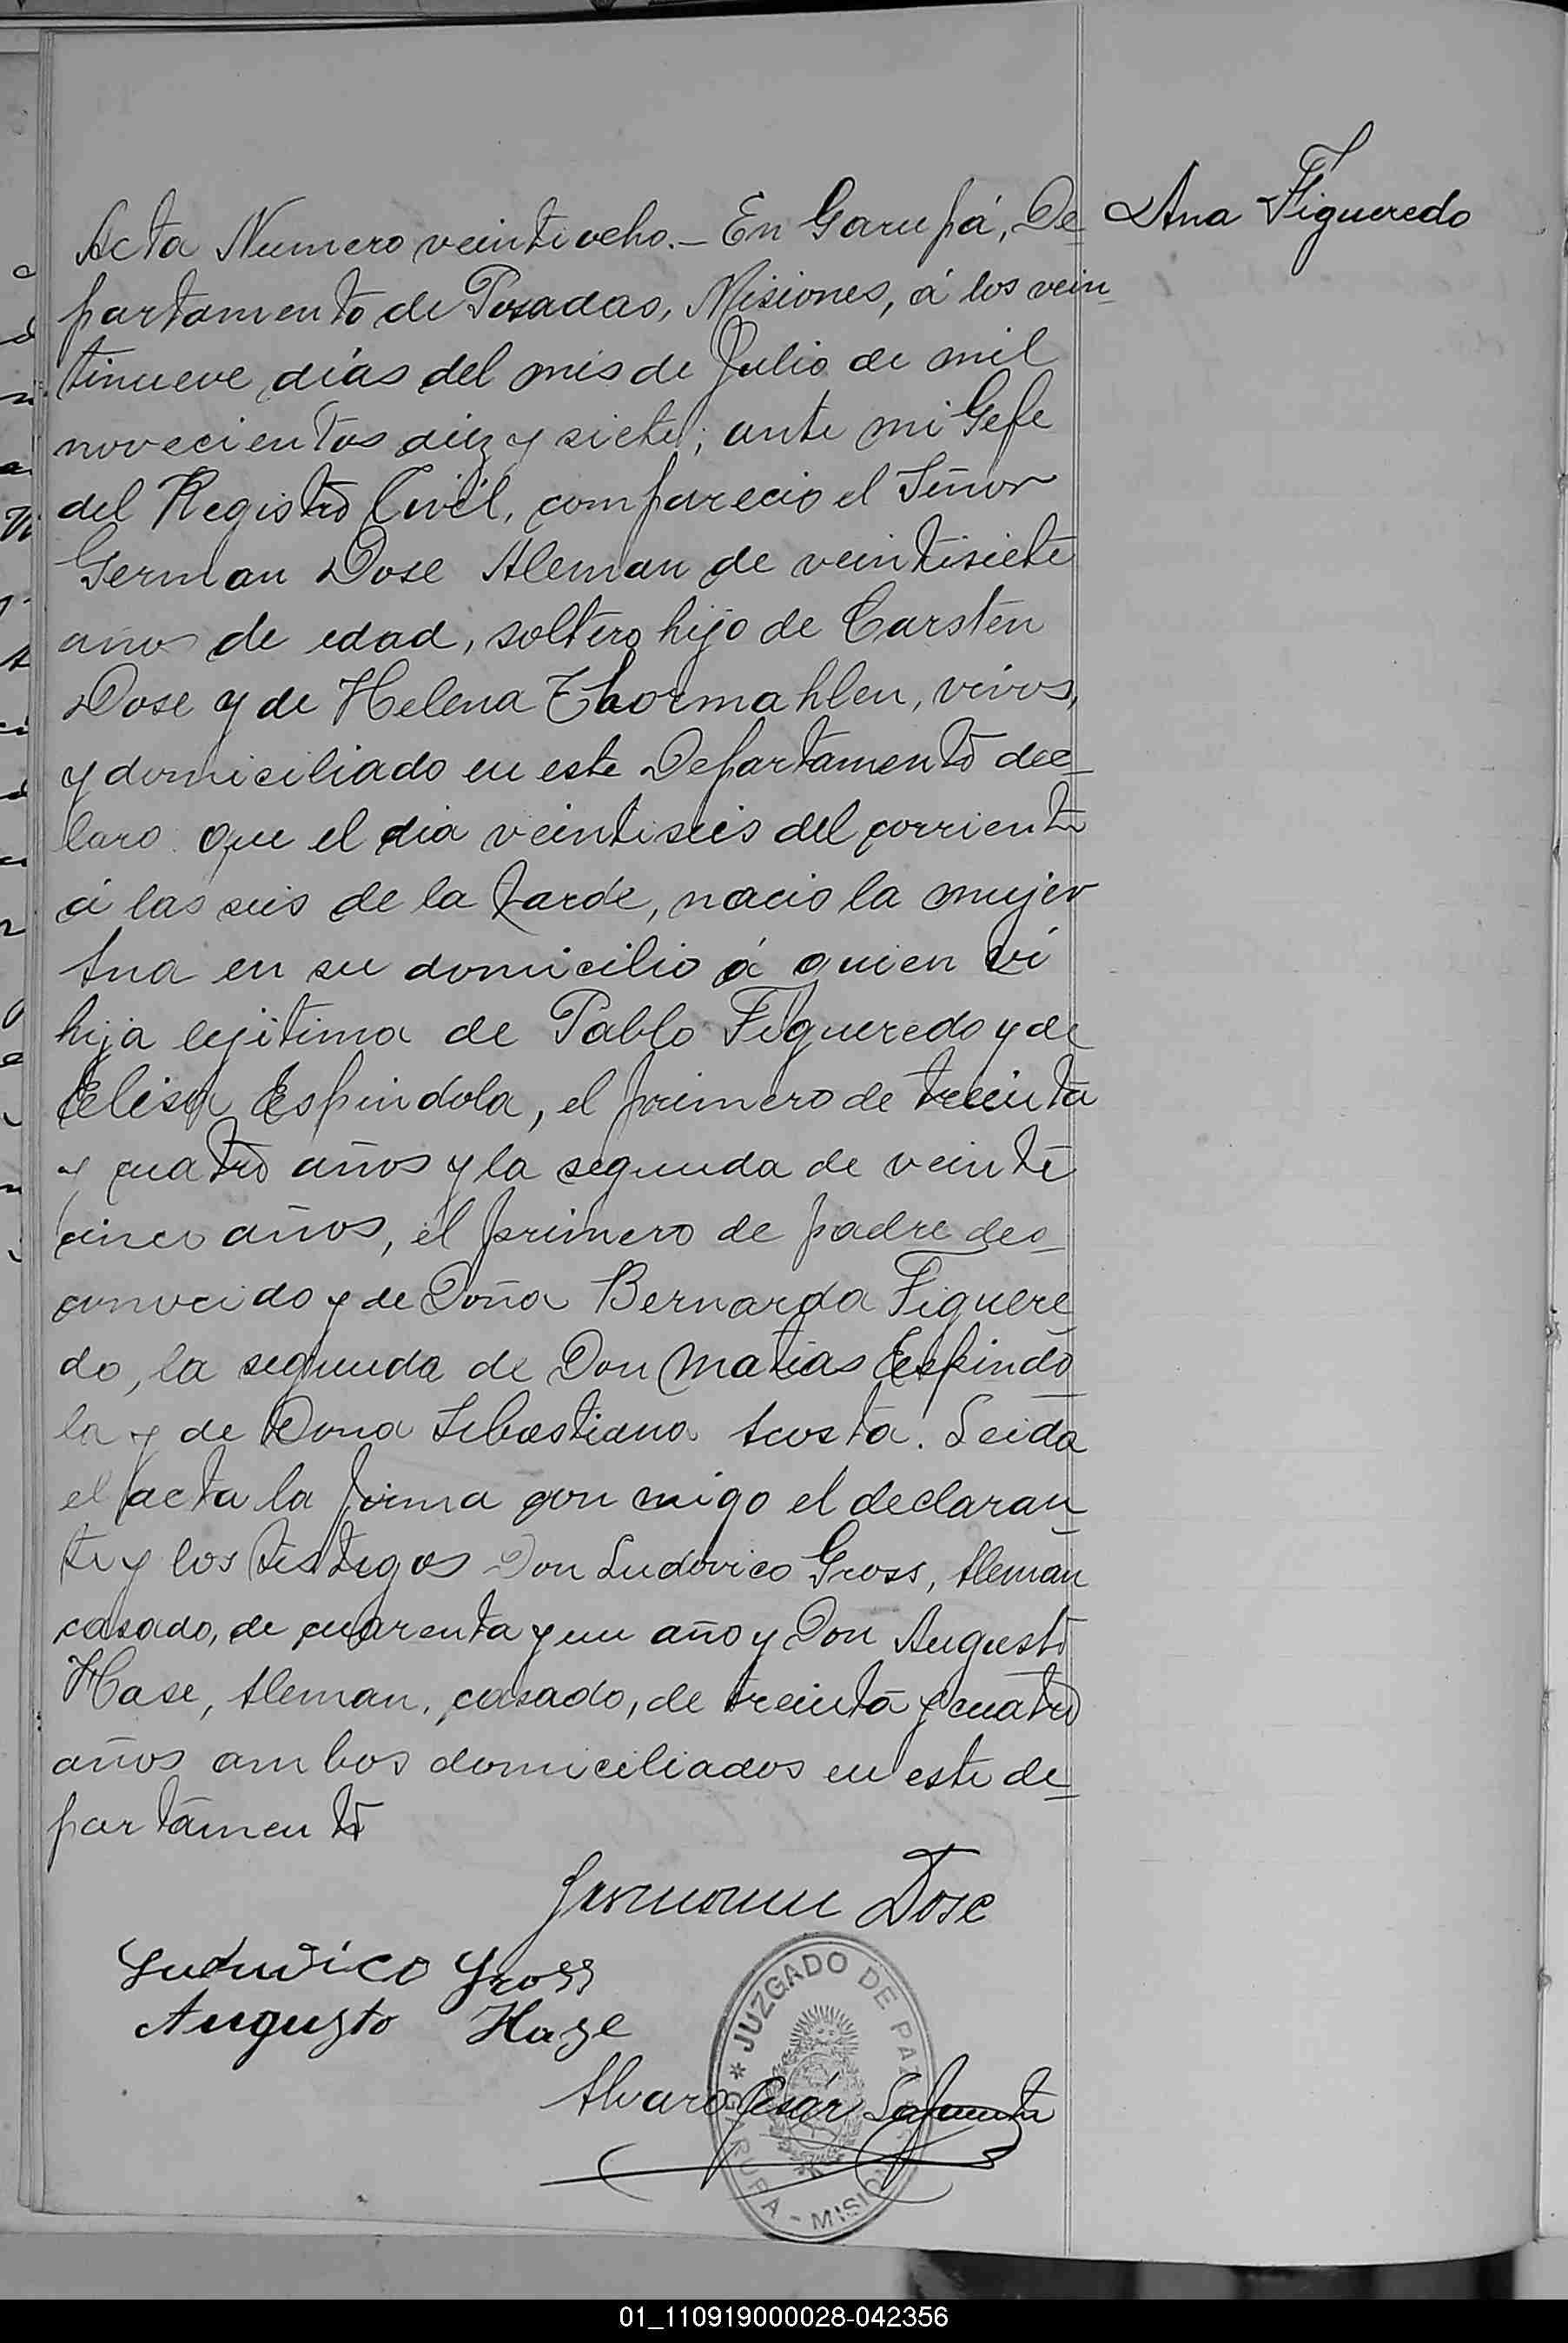 Ana Figueredo
Acta Numero veintiocho.— En Garupá, De-
partamento de Posadas, Misiones, á los vein-
tinueve días del mes de Julio de mil
novecientos diez y siete; ante mi Gefe
del Registro Civil, comparecio el Señor
German Dose Aleman de veintisiete
años de edad, soltero hijo de Carsten
Dose y de Helena Thormahlen, vivos,
y domiciliado en este Departamento dec-
laro que el dia veintiseis del corriente
á las seis de la tarde, nacio la mujer
Ana en su domicilio á quien ví
hija lejitima de Pablo Figueredo y de
Elisa Espindola, el primero de treinta
y cuatro años y la segunda de veinte
cinco años, el primero de padre des-
conocido y de Doña Bernarda Figuere
do, la segunda de Don Matias Espindo
la y de Dona Sebastiana Acosta. Leida
el acta la firma con migo el declaran-
te y los testegos Don Ludovico Gross, Aleman
casado, de cuarenta y un año y Don Augusto
Hase, Aleman, casado, de treinta y cuatro
años ambos domiciliados en este de-
partamento
Hermann Dose
Ludovico Gross
Augusto Hase
* JUZGADO DE PAZ
Alvaro Cesár
GARUPA - MISIONES
01_110919000028-042356